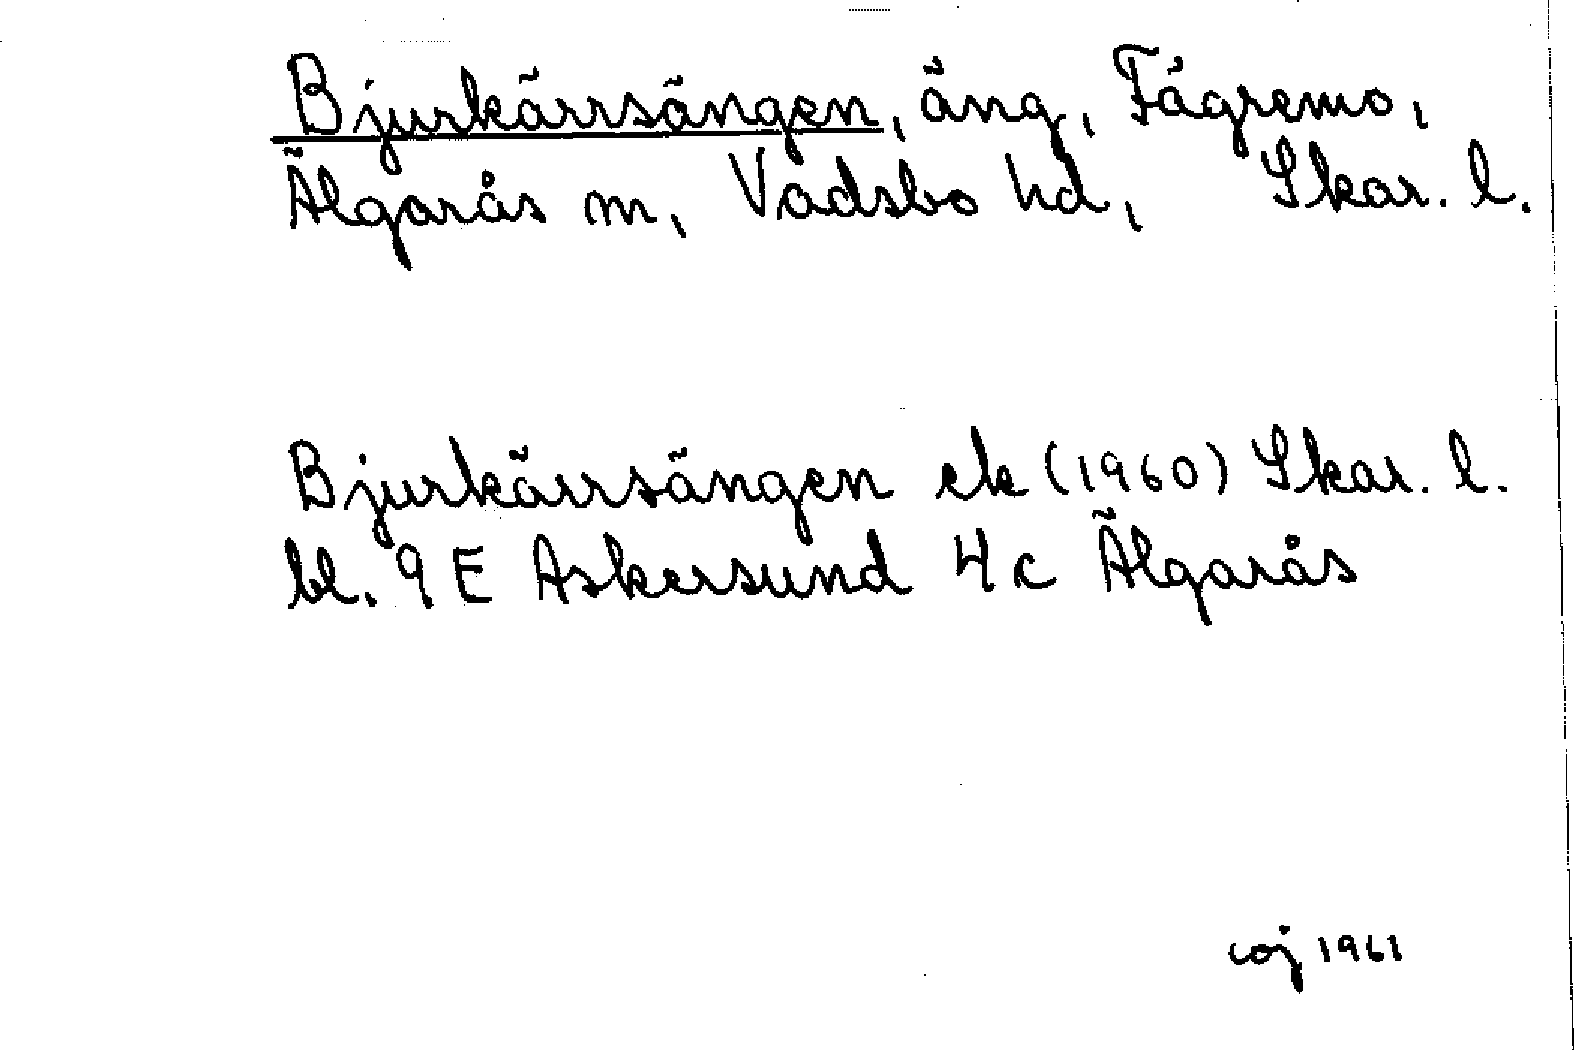 Bjurkärrsängen, äng, Fägremo,
Älgarås sn, Vadsbo hd, Skar. l.
Bjurkärrsängen ek (1960) Skar. l.
bl. 9 E Askersund 4 c Älgarås
coj 1961